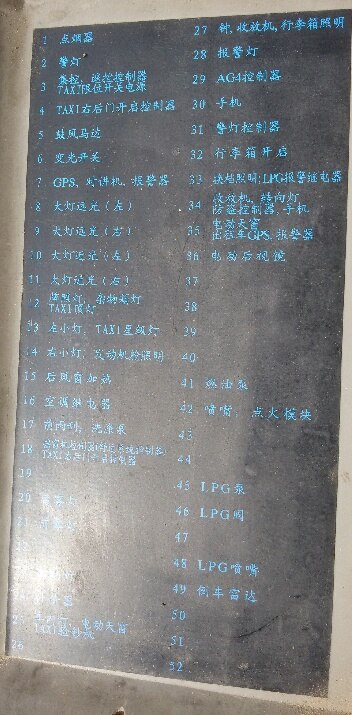 1 点烟器
2 警灯
3 集控、遥控控制器
TAXI限位开关电源
4 TAXI右后门开启控制器
5 鼓风马达
6 变光开关
7 GPS、对讲机、报警器
8 大灯远光（左）
9 大灯远光（右）
10 大灯近光（左）
11 大灯近光（右）
12
TAXI顶灯
13 左小灯、TAXI星级灯
14 右小灯、发动机舱照明
15 后风窗加热
16 空调继电器
17 前雨刮、洗涤泵
18
19
20
21
25 电动天窗
TAXI
26
27 钟,收放机,行李箱照明
28 报警灯
29 AG4控制器
30 手机
31 警灯控制器
32 行李箱开启
33 换档照明;LPG报警继电器
34 收放机、转向灯
防盗控制器、手机
35 电动天窗
出租车GPS、报警器
36 电动后视镜
37
38
39
40
41 燃油泵
42 喷嘴、点火模块
43
44
45 LPG泵
46 LPG阀
47
48 LPG喷嘴
49 倒车雷达
50
51
52